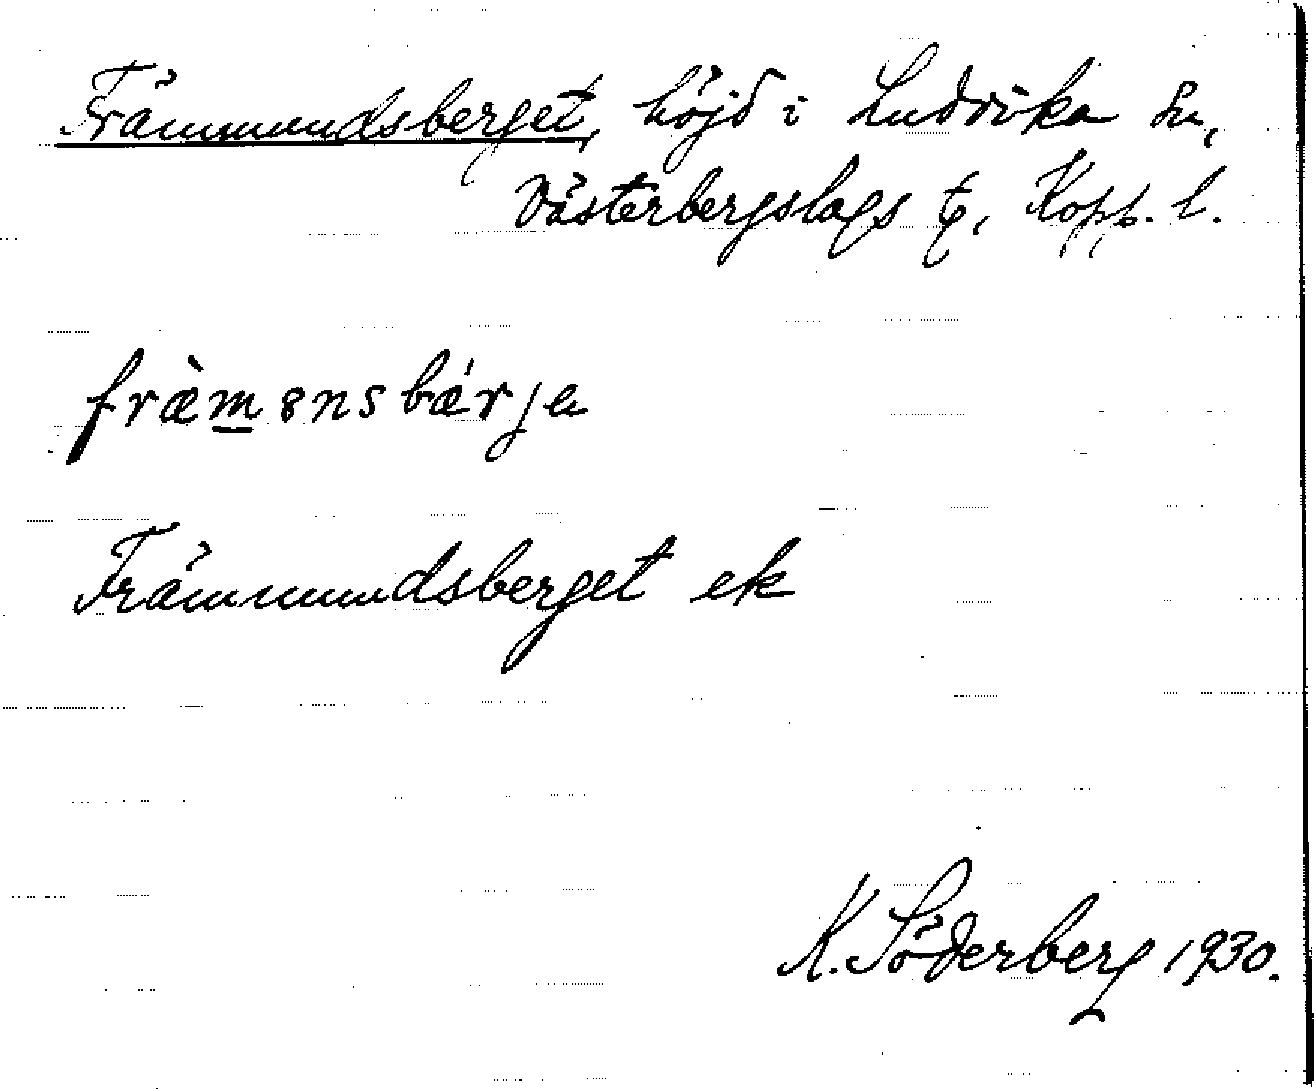 Främmundsberget, höjd i Ludvika sn,
Västerbergslags tg, Kopp. l.
fræ̀m̲ɞnsbǽrja
Främmundsberget ek
K. Söderberg 1930.